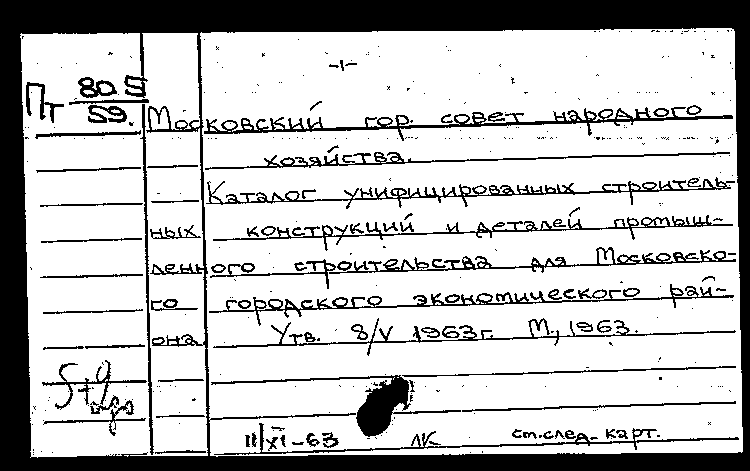 -1-
Пт 80.5
59. Московский гор. совет народного
хозяйства.
Каталог унифицированных строитель-
ных конструкций и деталей промыш-
ленного строительства для Московско-
го городского экономического рай-
она. Утв. 8/V 1963г. М., 1963.
5+9
11/XI-63 ЛК см.след. карт.